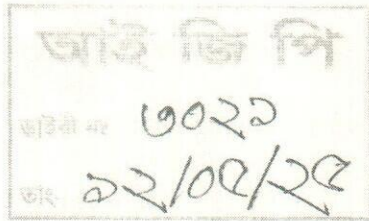 আই জি পি
ডাইরী নং ৩০২১
তাং- ১২/০৫/২৫